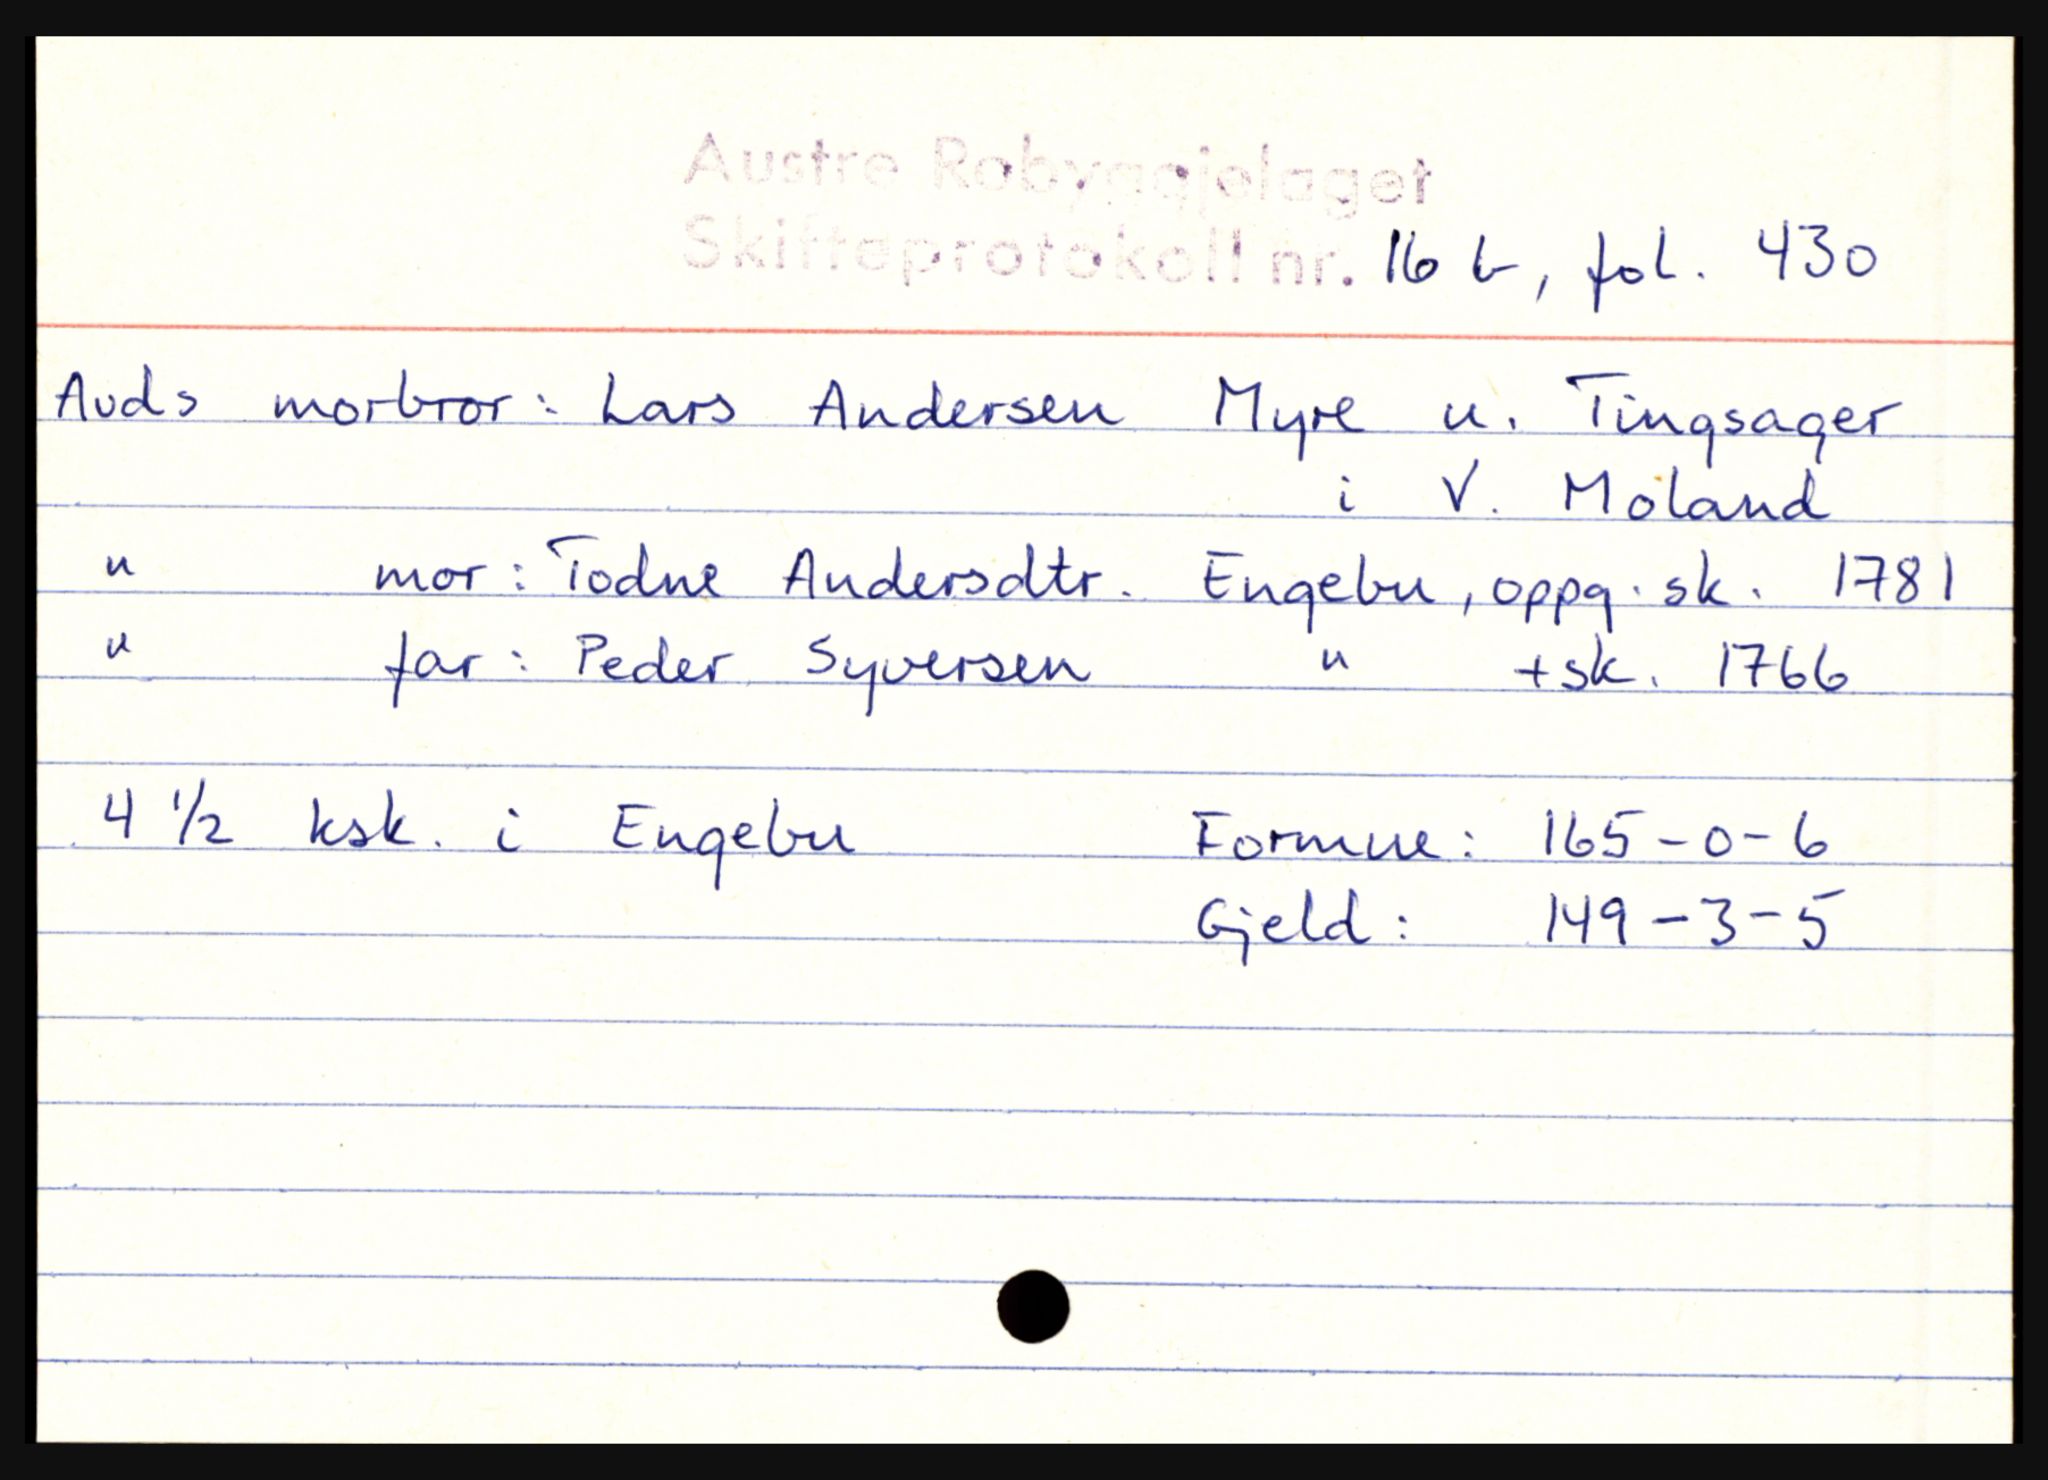 Austre Robyggjelaget
Skifteprotokoll nr. 16 b, fol. 430
Auds morbror: Lars Andersen Myre u. Tingsager
i V. Moland
" mor: Todne Andersdtr. Engebu, oppg. sk. 1781
" far: Peder Syversen " +sk. 1766
4 1/2 ksk. i Engebu Formue: 165-0-6
Gjeld: 149-3-5